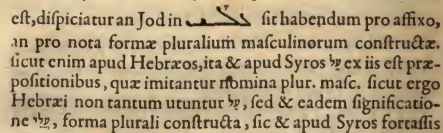 eſt, diſpiciatur an Jod in ſit habendum pro affixo,
an pro nota formæ pluralium maſculinorum conſtructæ.
ſicut enim apud Hebræos, ita & apud Syros על ex iis eſt præ-
poſitionibus, quæ imitantur nomina plur. maſc. ſicut ergo
Hebræi non tantum utuntur על, ſed & eadem ſignificatio-
ne עלי, forma plurali conſtructa, ſic & apud Syros fortaſſis